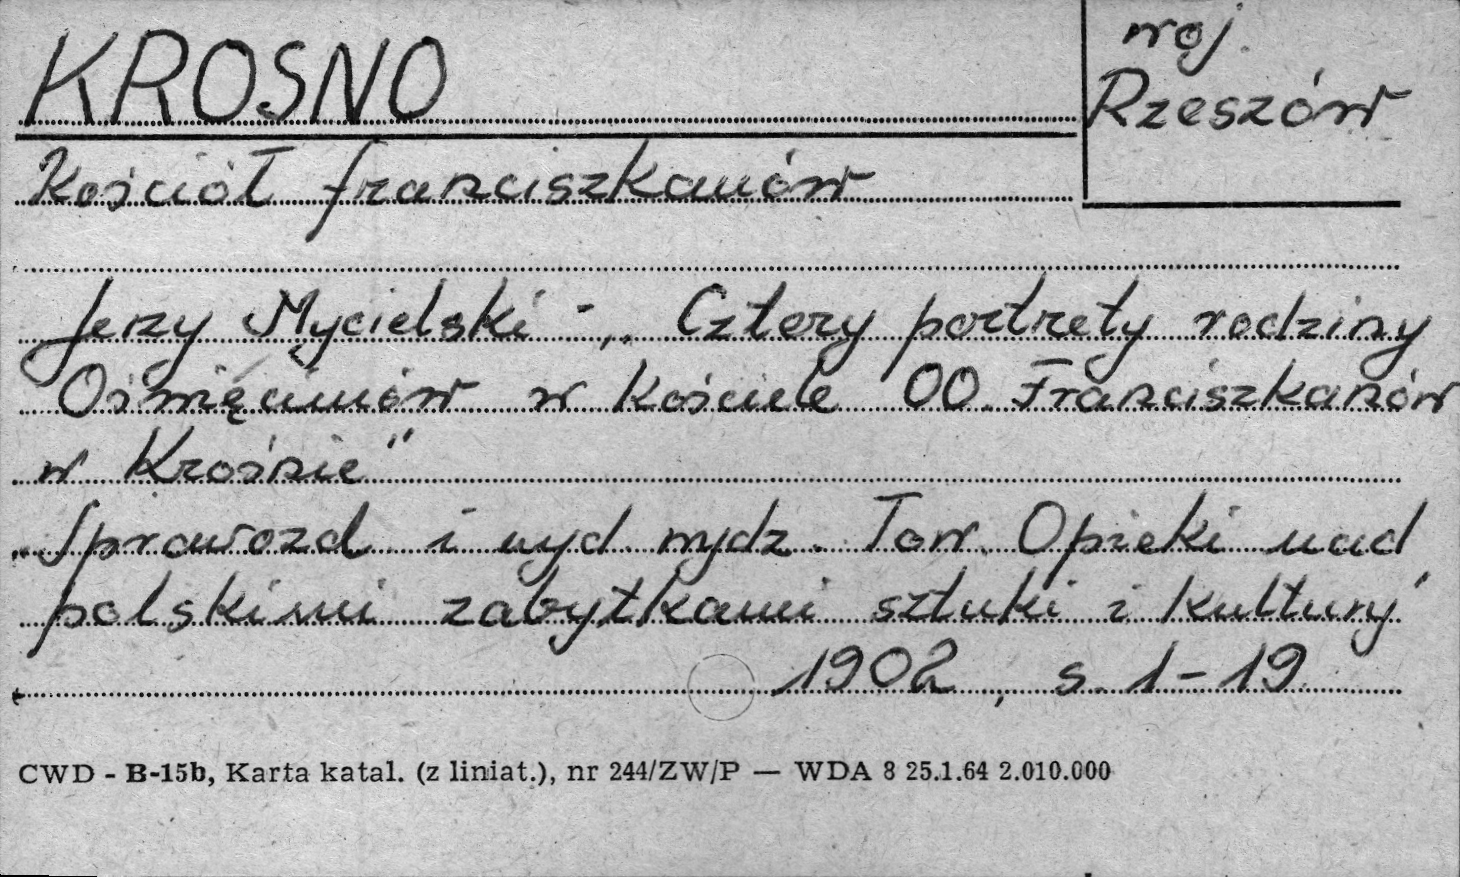 KROSNO
woj.
Rzeszów
Kościół franciszkanów
Jerzy Mycielski - „Cztery portrety rodziny
Oświęcimów w kościele OO. Franciszkanów
w Krośnie"
„Sprawozd i wyd wydz. Tow. Opieki nad
polskimi zabytkami sztuki i kultury"
1902, s. 1-19
CWD - B-15b, Karta katal. (z liniat.), nr 244/ZW/P — WDA 8 25.1.64 2.010.000